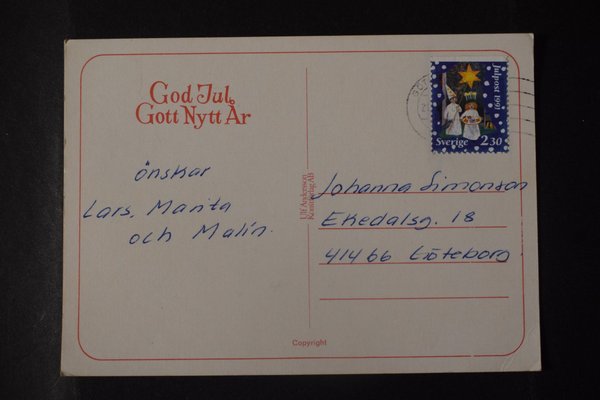 God Jul
Gott Nytt År
önskar
Lars, Marita
och Malin.
Julpost 1991
Sverige 2.30
Ulf Andersson
Konstförlag AB
Johanna Simonson
Ekedalsg. 18
414 66 Göteborg.
Copyright